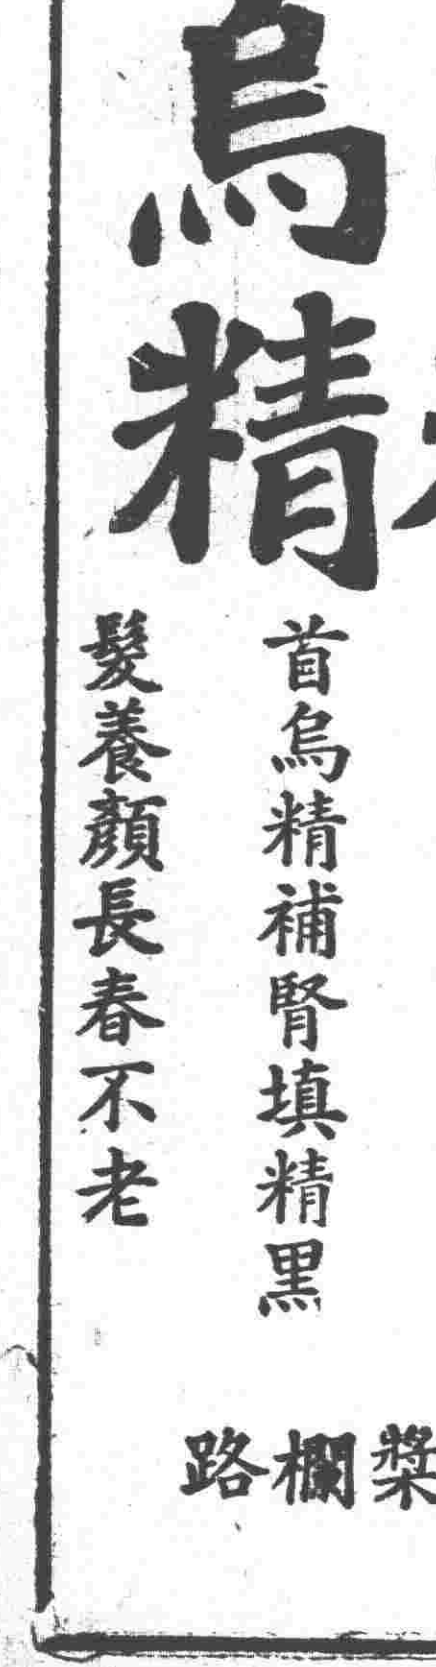 烏精
首烏精補腎填精黑
髮養顏長春不老
槳欄路